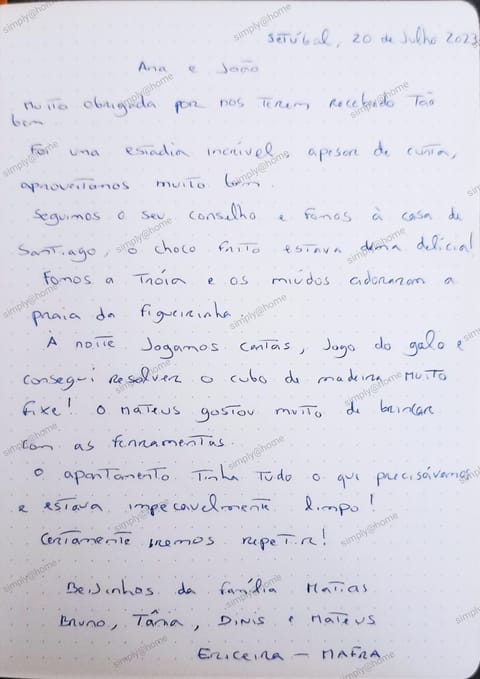 Setúbal, 20 de Julho 2023
Ana e João
Muito obrigada por nos terem recebido tão
bem.
Foi uma estadia incrível, apesar de curta,
aproveitamos muito bem.
Seguimos o seu conselho e fomos à casa de
Santiago, o choco frito estava duma delícia!
Fomos a Tróia e os miúdos adoraram a
praia da figueirinha
À noite Jogamos cartas, Jogo do galo e
consegui resolver o cubo de madeira. Muito
fixe! O Mateus gostou muito de brincar
com as ferramentas.
O apartamento tinha tudo o que precisávamos
e estava impecavelmente limpo!
Certamente iremos repetir!
Beijinhos da família Matias
Bruno, Tânia, Dinis e Mateus
Ericeira - MAFRA
simply@home